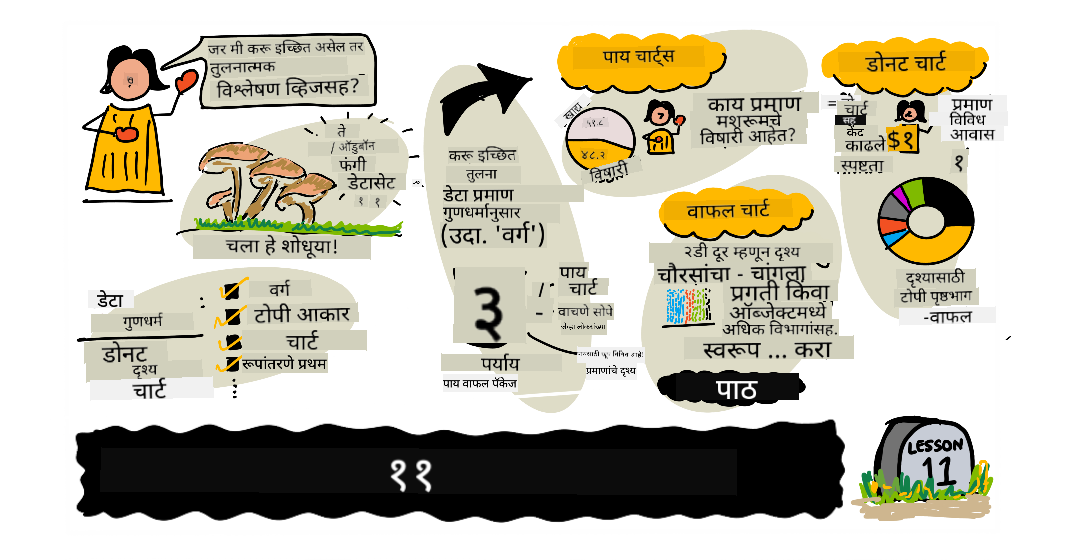 जर मी करू इच्छित असेल तर
तुलनात्मक
विश्लेषण व्हिजसह?
ते
/ ऑडुबॉन
फंगी
डेटासेट
१ १
चला हे शोधूया!
डेटा
गुणधर्म
डोनट
दृश्य
चार्ट
वर्ग
टोपी आकार
चार्ट
रूपांतरणे प्रथम
करू इच्छित
तुलना
डेटा प्रमाण
गुणधर्मानुसार
(उदा. 'वर्ग')
३
पर्याय
पाय वाफल पॅकेज
पाय
/ चार्ट
- वाचणे सोपे
प्रमाणांचे दृश्य
पाय चार्ट्स
खाद्य
५१.८
४८.२
विषारी
काय प्रमाण
मशरूमचे
विषारी आहेत?
वाफल चार्ट
२डी दूर म्हणून दृश्य
चौरसांचा - चांगला
प्रगती किंवा
ऑब्जेक्टमध्ये
अधिक विभागांसह.
स्वरूप ... करा
पाठ
डोनट चार्ट
=
चार्ट
सह
केंद
काढले
स्पष्टता
$१
प्रमाण
विविध
आवास
१
दृश्यासाठी
टोपी पृष्ठभाग
-वाफल
११
LESSON
11